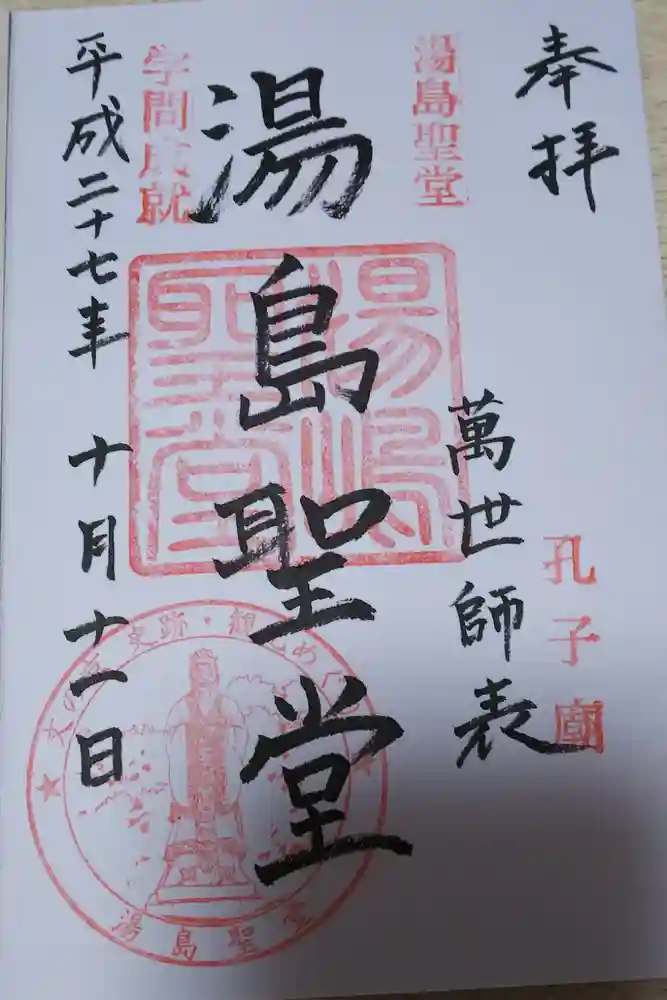 奉拝
孔子廟
萬世師表
湯島聖堂
湯島聖堂
湯嶋聖堂
学問成就
平成二十七年 十月十一日
史跡・観
湯島聖堂